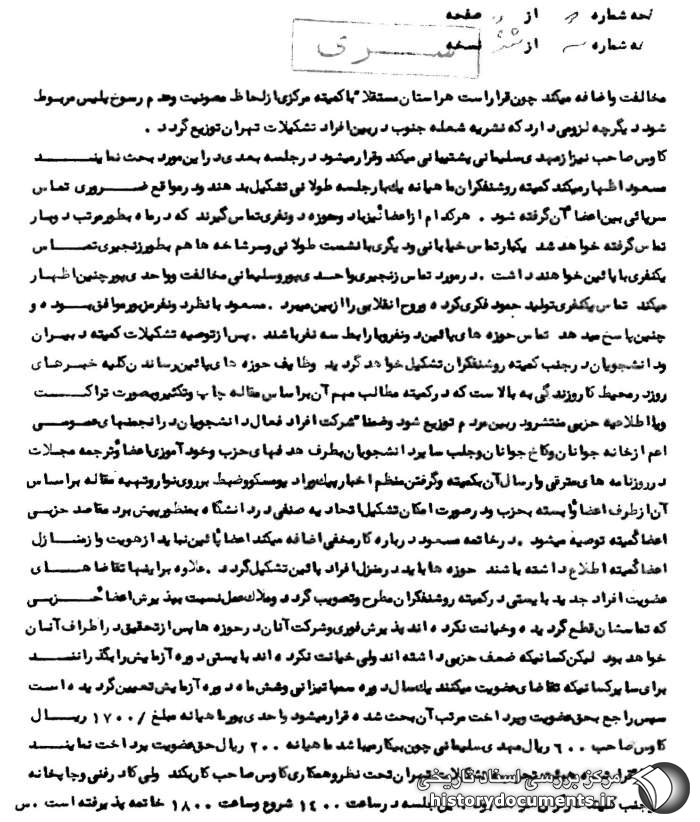 نحه شماره از صفحه
نه شماره از شش نسخه
سری
مخالفت واضافه میکند چون قراراست هراستان مستقلا" باکمیته مرکزی ازلحاظ مصونیت وعدم رسوخ پلیس مربوط
شود دیگرچه لزومی دارد که نشریه شعله جنوب دربین افراد تشکیلات تهران توزیع گردد .
کاوس صاحب نیزازمهدی سلیمانی پشتیبانی میکند وقرارمیشود درجلسه بعدی دراین مورد بحث نمایند
مسعود اظهارمیکند کمیته روشنفکران ماهیانه یک بارجلسه طولانی تشکیل بدهند ودرمواقع ضروری تماس
سرپائی بین اعضاء آن گرفته شود . هرکدام ازاعضاء نیزباد وحوزه دونفری تماس گیرند که درماه بطورمرتب دوبار
تماس گرفته خواهد شد یکبارتماس خیابانی ودیگری بانشست طولانی وسرشاخه ها هم بطورزنجیری تماس
یکنفری باپائین خواهند داشت . درمورد تماس زنجیری واحدی پوروسلیمانی مخالفت وواحدی پورچنین اظهار
میکند تماس یکنفری تولید جمود فکری کرده وروح انقلابی راازبین میبرد . مسعود بانظردونفرمزبورموافق بوده و
چنین پاسخ میدهد تماس حوزه های پائین دونفروبارابط سه نفرباشند . پس ازتوصیه تشکیلات کمیته دبیران
ودانشجویان درجنب کمیته روشنفکران تشکیل خواهد گردید وظایف حوزه های پائین رساندن کلیه خبرهای
روزدرمحیط کاروزندگی به بالاست که درکمیته مطالب مهم آن براساس مقاله چاپ وتکثیروبصورت تراکت
ویااطلاعیه حزبی منتشرود ربین مردم توزیع شود وضمنا" شرکت افراد فعال دانشجویان درانجمنهای عمومی
اعم ازخانه جوانان وکاخ جوانان وجلب سایردانشجویان بطرف هدفهای حزب وخودآموزی اعضاء وترجمه مجلات
درروزنامه های مترقی وارسال آن بکمیته وگرفتن منظم اخبارپیک وراد یومسکووضبط برروی نواروتهیه مقاله براساس
آن ازطرف اعضاء وابسته بحزب ودرصورت امکان تشکیل اتحادیه صنفی دردانشگاه بمنظورپیش برد مقاصد حزبی
اعضاء کمیته توصیه میشود . درخاتمه مسعود درباره کارمخفی اضافه میکند اعضاء پائین نباید ازهویت وازمنازل
اعضاء کمیته اطلاع داشته باشند حوزه ها باید درمنزل افراد پائین تشکیل گردد . علاوه براینها تقاضاهای
عضویت افراد جدید بایستی درکمیته روشنفکران مطرح وتصویب گردد وملاک عمل نسبت بپذیرش اعضاء حزبی
که تماسشان قطع گردیده وخیانت نکرده اند پذیرش فوری وشرکت آنان درحوزه ها پس ازتحقیق دراطراف آنان
خواهد بود لیکن کسانیکه ضعف حزبی داشته اند ولی خیانت نکرده اند بایستی دوره آزمایش رابگذرانند
برای سایرکسانیکه تقاضای عضویت میکنند یک سال دوره سمپاتیزانی وشش ماه دوره آزمایش تعیین گردیده است
سپس راجع بحق عضویت وپرداخت مرتب آن بحث شده قرارمیشود واحدی پورماهیانه مبلغ /۱۷۰۰ ریال
کاوس صاحب ۶۰۰ ریال مهدی سلیمانی چون بیکارمیباشد ماهیانه ۲۰۰ ریال حق عضویت پرداخت نمایند
تهران تحت نظروهمکاری کاوس صاحب کاربکند ولی کادرفنی وچاپخانه
جلسه درساعت ۱۴۰۰ شروع وساعت ۱۸۰۰ خاتمه پذیرفته است .س
مرکز بررسی اسناد تاریخی
historydocuments.ir